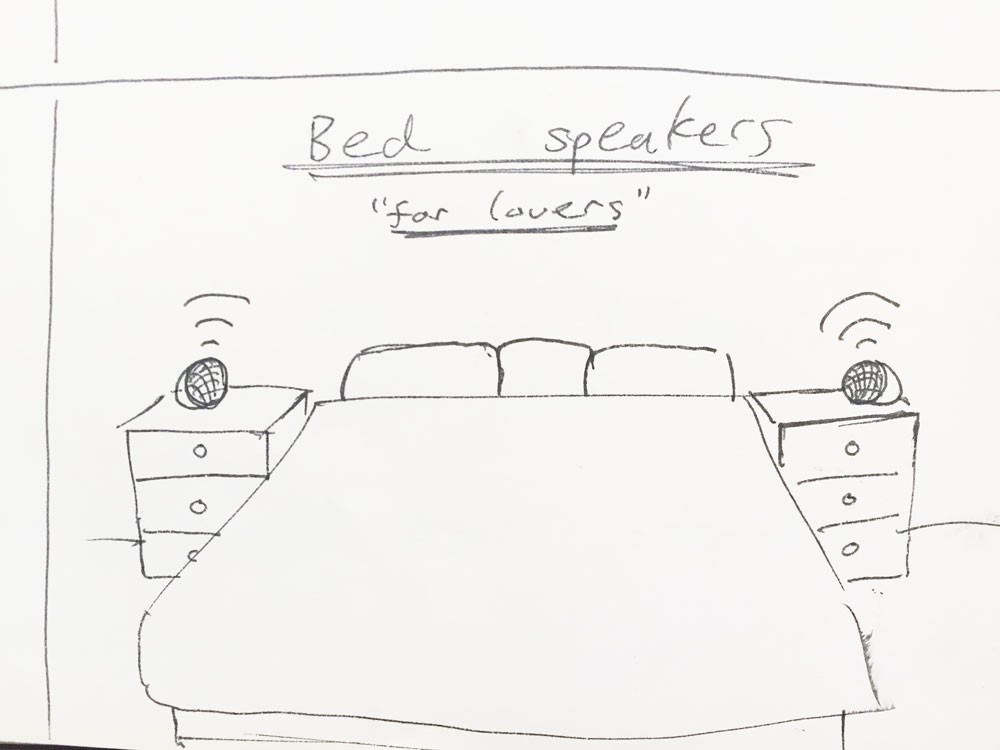 Bed speakers
"for lovers"